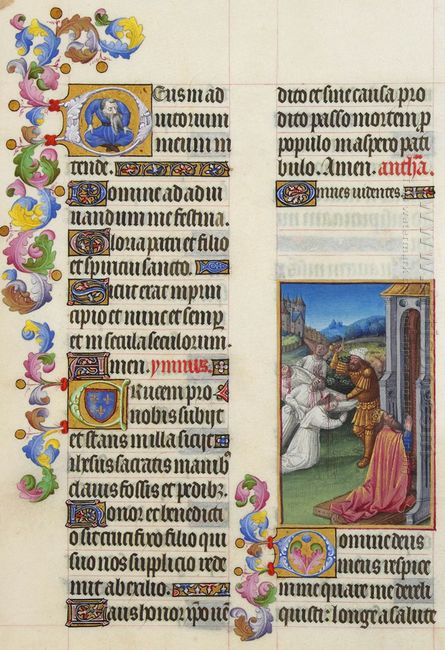 Deus in ad
iutorium
meum in
tende.
Domine ad adiu
uandum me festina.
Gloria patri et filio
et spiritui sancto.
Sicut erat in prin
cipio et nunc et semper
et in secula seculorum.
Amen. ymnus.
Crucem pro
nobis subiit
et stans in illa sicijt
ihesus sacratis manibus
clauis fossis et pedibus.
Honor et benedicti
o sit crucifixo filio qui
suo nos supplicio rede
mit ab exilio.
Laus honor christo uen
dito et sine causa pro
dito passo mortem pro
populo in aspero pati
bulo. Amen. antha.
Omnes uidentes.
Domine deus
meus respice
in me quare me dereli
quisti: longe a salute